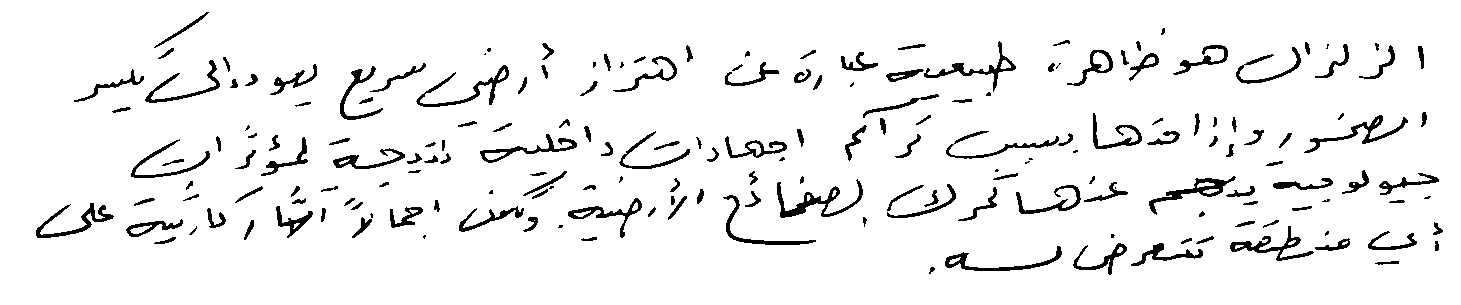 الزلزال هو ظاهرة طبيعية عبارة عن اهتزاز أرضي سريع يعود إلى تكسر
الصخور وإزاحتها بسبب تراكم اجهادات داخلية نتيجة لمؤثرات
جيولوجية ينجم عنها تحرك الصفائح الأرضية. اجمالاً آثار كارثية على
أي منطقة تتعرض له.